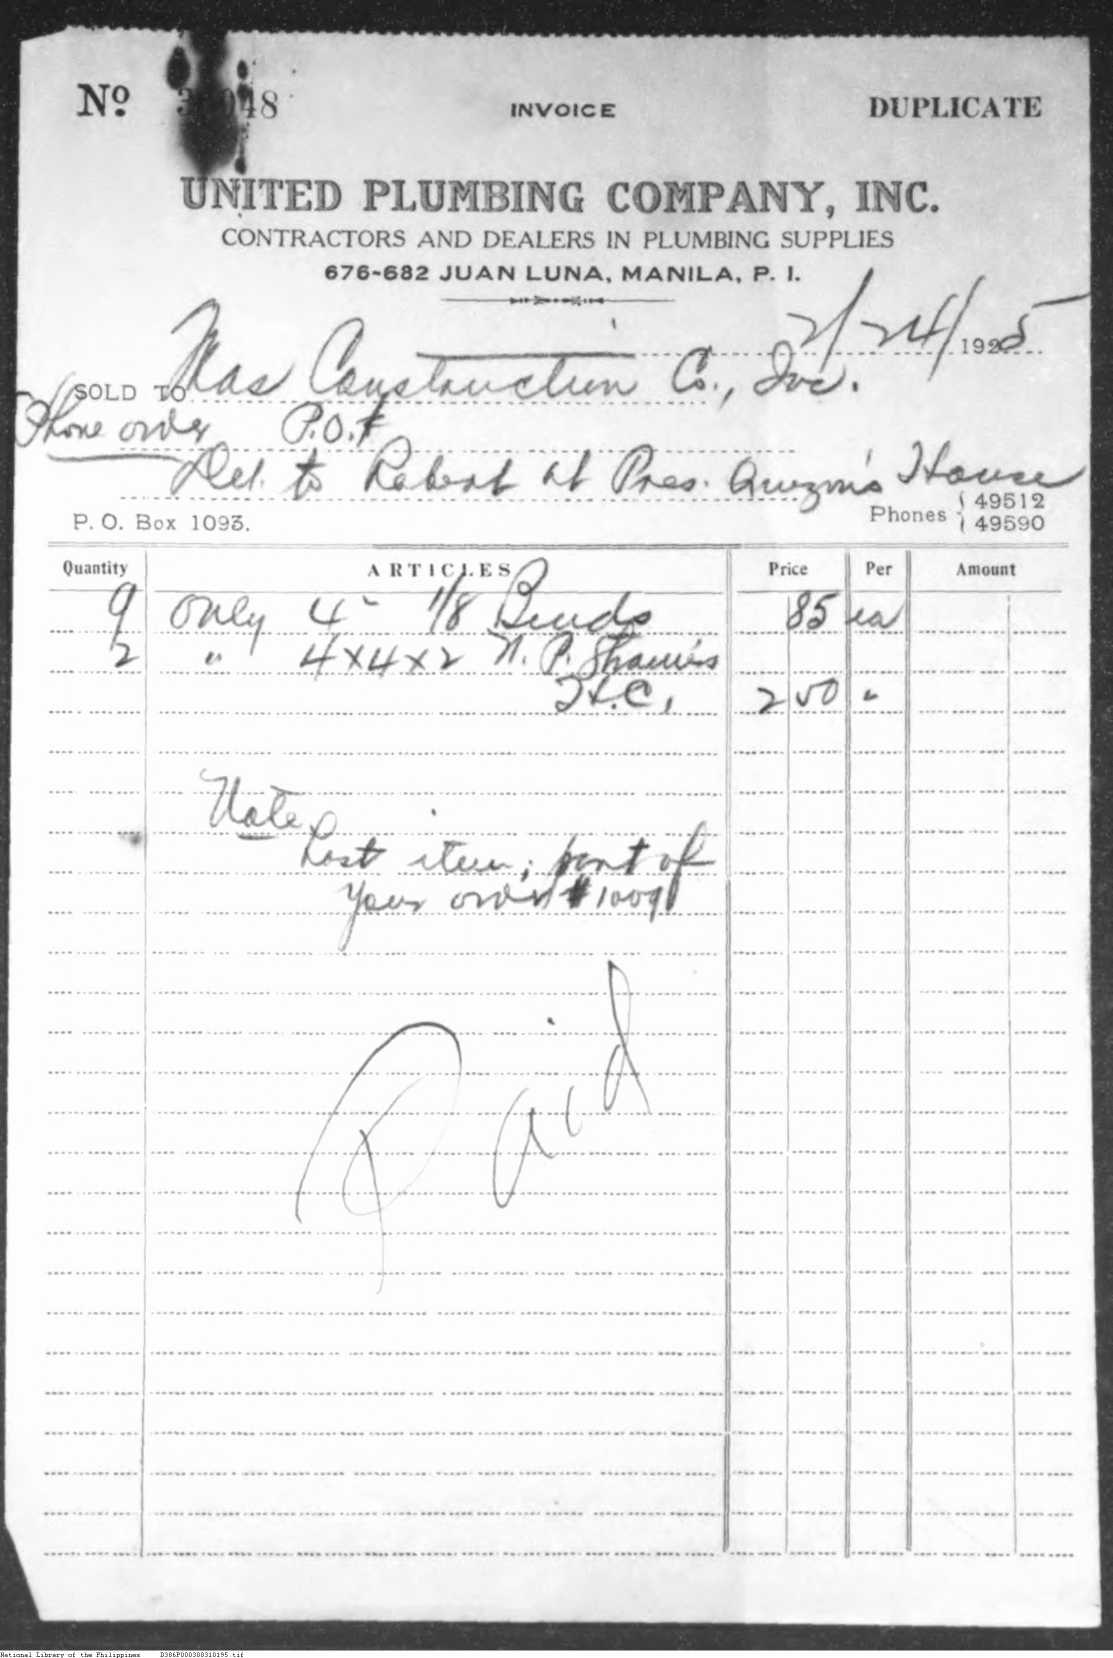 Nº 48
INVOICE
DUPLICATE
UNITED PLUMBING COMPANY, INC.
CONTRACTORS AND DEALERS IN PLUMBING SUPPLIES
676-682 JUAN LUNA, MANILA, P. I.
2/24/1925
SOLD TO Construction Co., Inc.
Phone order P.O.#
Del. to Robert at Pres. Quezon's House
P. O. Box 1093.
Phones 49512
49590
Quantity ARTICLES Price Per Amount
9 only 4" 1/8 Bends 85 ea
2 " 4x4x2 P.
2 50 "
Note
Last item; part of
your order #10091
Paid
National Library of the Philippines D386P000388310195.tif